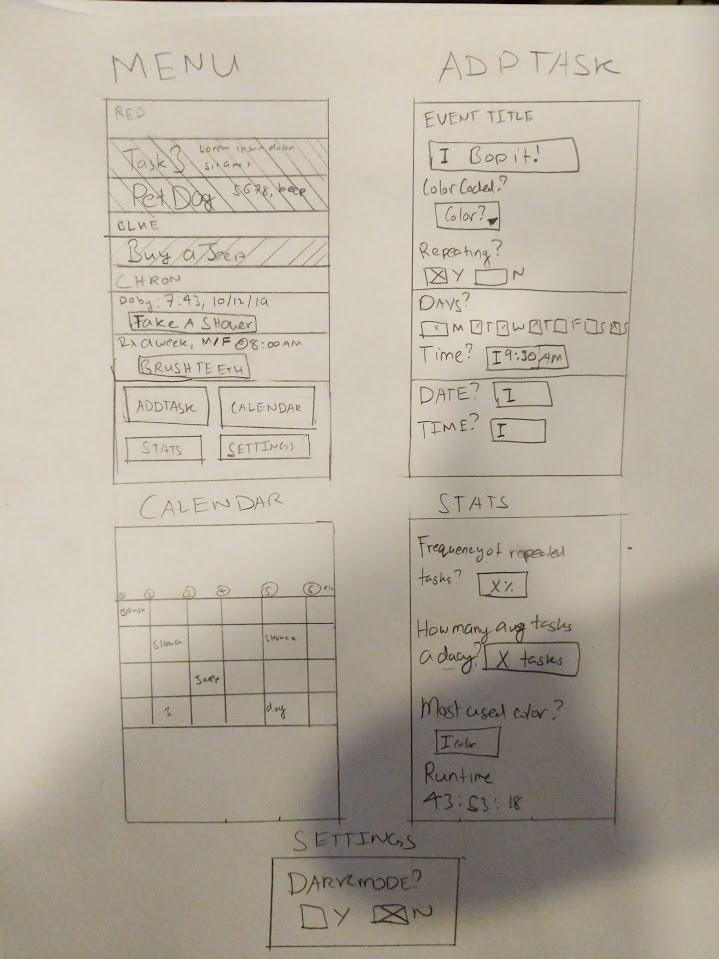 MENU
RED
Task 3 Lorem ipsum dolor
sit amet
Pet Dog 5678, beep
BLUE
Buy a Jeep
CHRON
Doby: 7:43, 10/12/19
Take A Shower
Rx a week, M/F @ 8:00 AM
BRUSH TEETH
ADDTASK CALENDAR
STATS SETTINGS
ADDTASK
EVENT TITLE
I Bop it!
Color Coded?
Color?
Repeating?
Y N
DAYS?
M T W T F S S
Time? I 9:30 AM
DATE? I
TIME? I
CALENDAR
1 2 3 4 5 6 etc
Brush
Shower Shower
Jeep
3 dog
STATS
Frequency of repeated
tasks? X%
How many avg tasks
a day? X tasks
Most used color?
I color
Runtime
43:53:18
SETTINGS
DARKMODE?
Y N